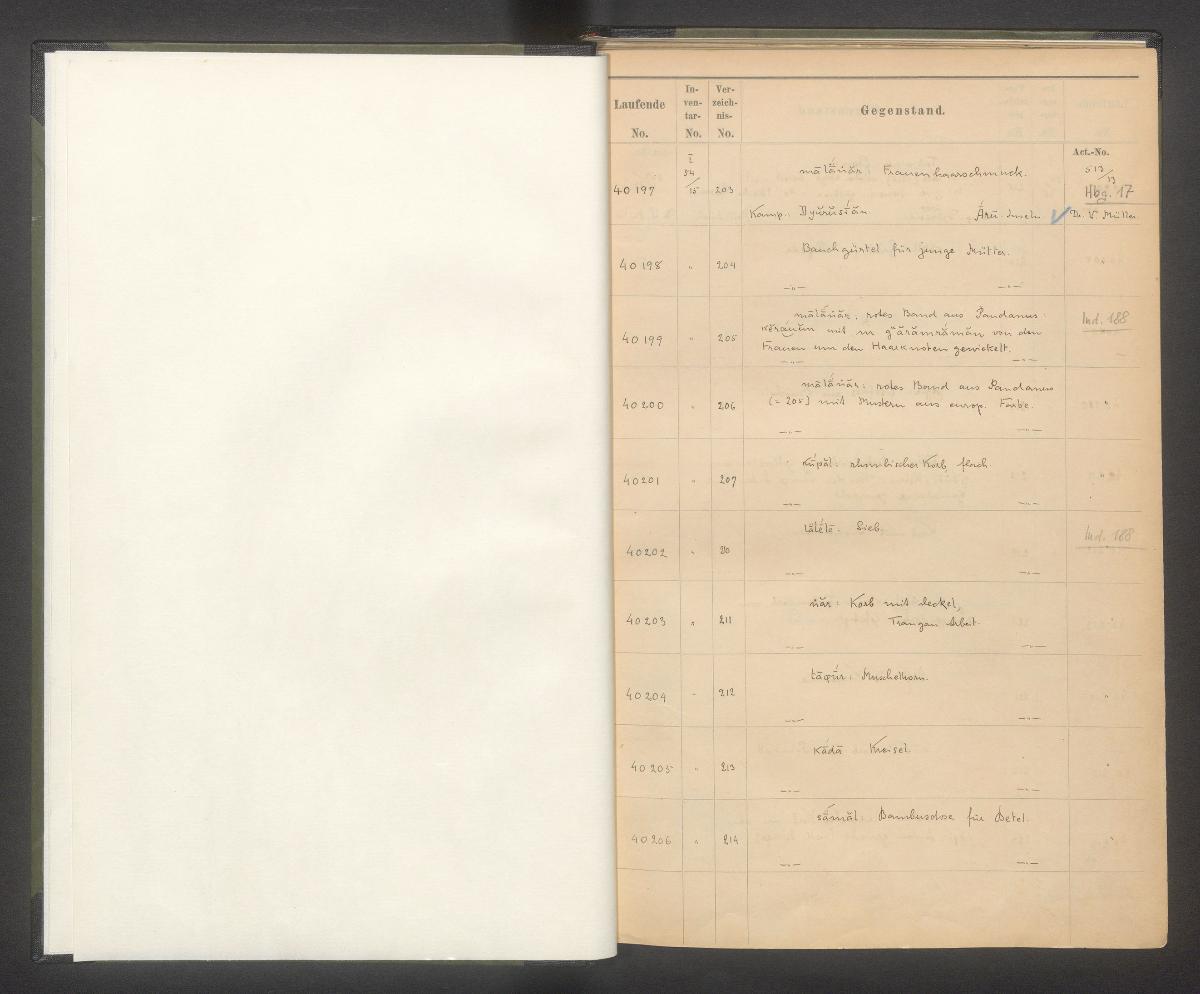 Laufende No. In-ven-tar-No. Ver-zeich-nis-No. Gegenstand.
Act.-No.
40197 I 54/15 203 mătắnăr Frauenhaarschmuck. 513/13
Hbg. 17
Kamp.: Ārū-Inseln Dr. V Müller
40198 " 204 Bauchgürtel für junge Mütter. "
—"— —"—
40199 " 205 mătắnăr: rotes Band aus Pandanus: Ind. 188
mit von den
Frauen um den Haarknoten gewickelt.
—"— —"—
40200 " 206 mătắnăr: rotes Band aus Pandanus
(= 205) mit Mustern aus europ. Farbe. "
—"— —"—
40201 " 207 kúpăl: rhombischer Korb, flach. "
—"— —"—
40202 " 210 tătétē: Sieb. Ind. 188
—"— —"—
40203 " 211 năr: Korb mit Deckel,
Trangan Arbeit. "
—"— —"—
40204 " 212 Muschelhorn. "
—"— —"—
40205 " 213 kádā Kreisel. "
—"— —"—
40206 " 214 sámăl: Bambusdose für Betel. "
—"— —"—